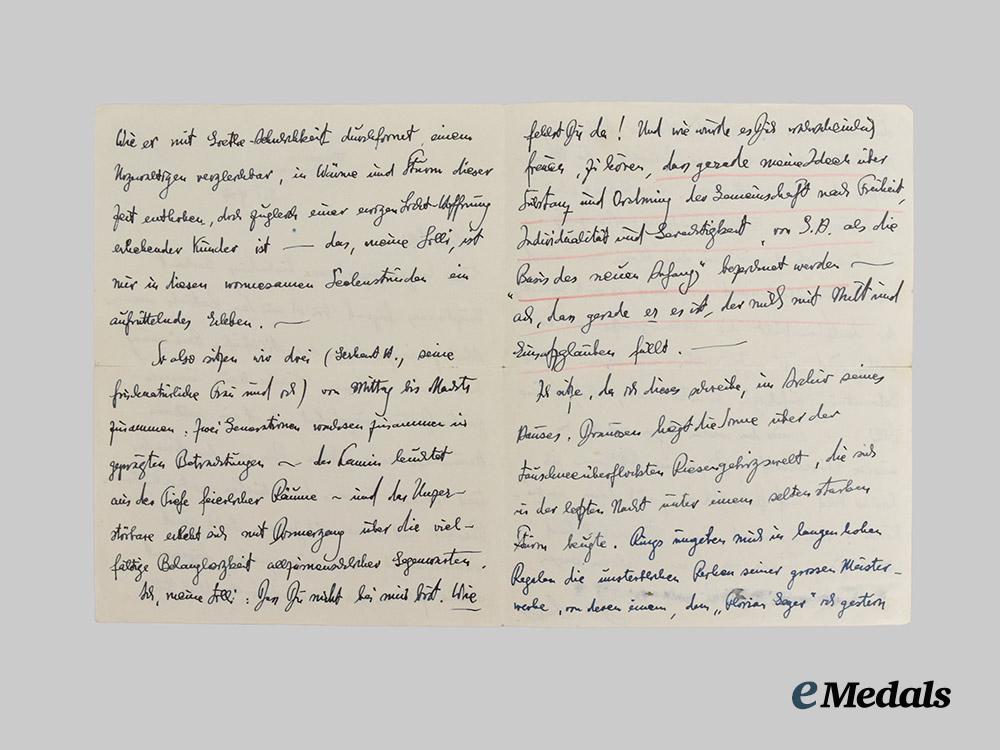 Wie er mit Goethe-Ähnlichkeit durchformt, einem
vergleichbar, in Wärme und Sturm dieser
Zeit enthoben, doch zugleich einer ewigen Licht-Hoffnung
erhebender Künder ist — das, meine Lilli, ist
mir in diesen wonnesamen Seelenstunden ein
aufrüttelndes Erleben. —
So also sitzen wir drei (Gerhart H., seine
Frau und ich) von Mittag bis Nachts
zusammen. Zwei Generationen wachsen zusammen in
geprägten Betrachtungen ~ der Kamin leuchtet
aus der Tiefe feierlicher Räume ~ und das Unzer-
störbare erhebt sich mit über die viel-
fältige Belanglosigkeit Gegenwarten.
Ach, meine Lilli: Dass Du nicht bei mir bist. Wie
fehlst Du da! Und wie würde es Dich wahrscheinlich
freuen, zu hören, dass gerade meine Ideen über
Substanz und Ordnung der Gemeinschaft nach Freiheit,
Individualität und Gerechtigkeit, von G.H. als die
"Basis des neuen Anfang" bezeichnet werden —
ach, dass gerade er es ist, der mich mit Mut und
füllt. —
Ich sitze, da ich dieses schreibe, im Archiv seines
Hauses. Draussen liegt die Sonne über der
Riesengebirgswelt, die sich
in der letzten Nacht unter einem selten starken
Sturm beugte. Rings umgeben mich in langen hohen
Regalen die unsterblichen Reihen seiner grossen Meister-
werke, von deren einem, dem „Florian Geyer" ich gestern
eMedals